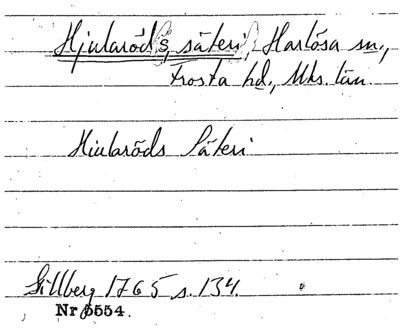 Hjularöd(s, säteri), Harlösa sn.,
Frosta hd., Mhs. län.
Hiularöds Säteri
Gillberg 1765 s. 134.
Nr 5554.